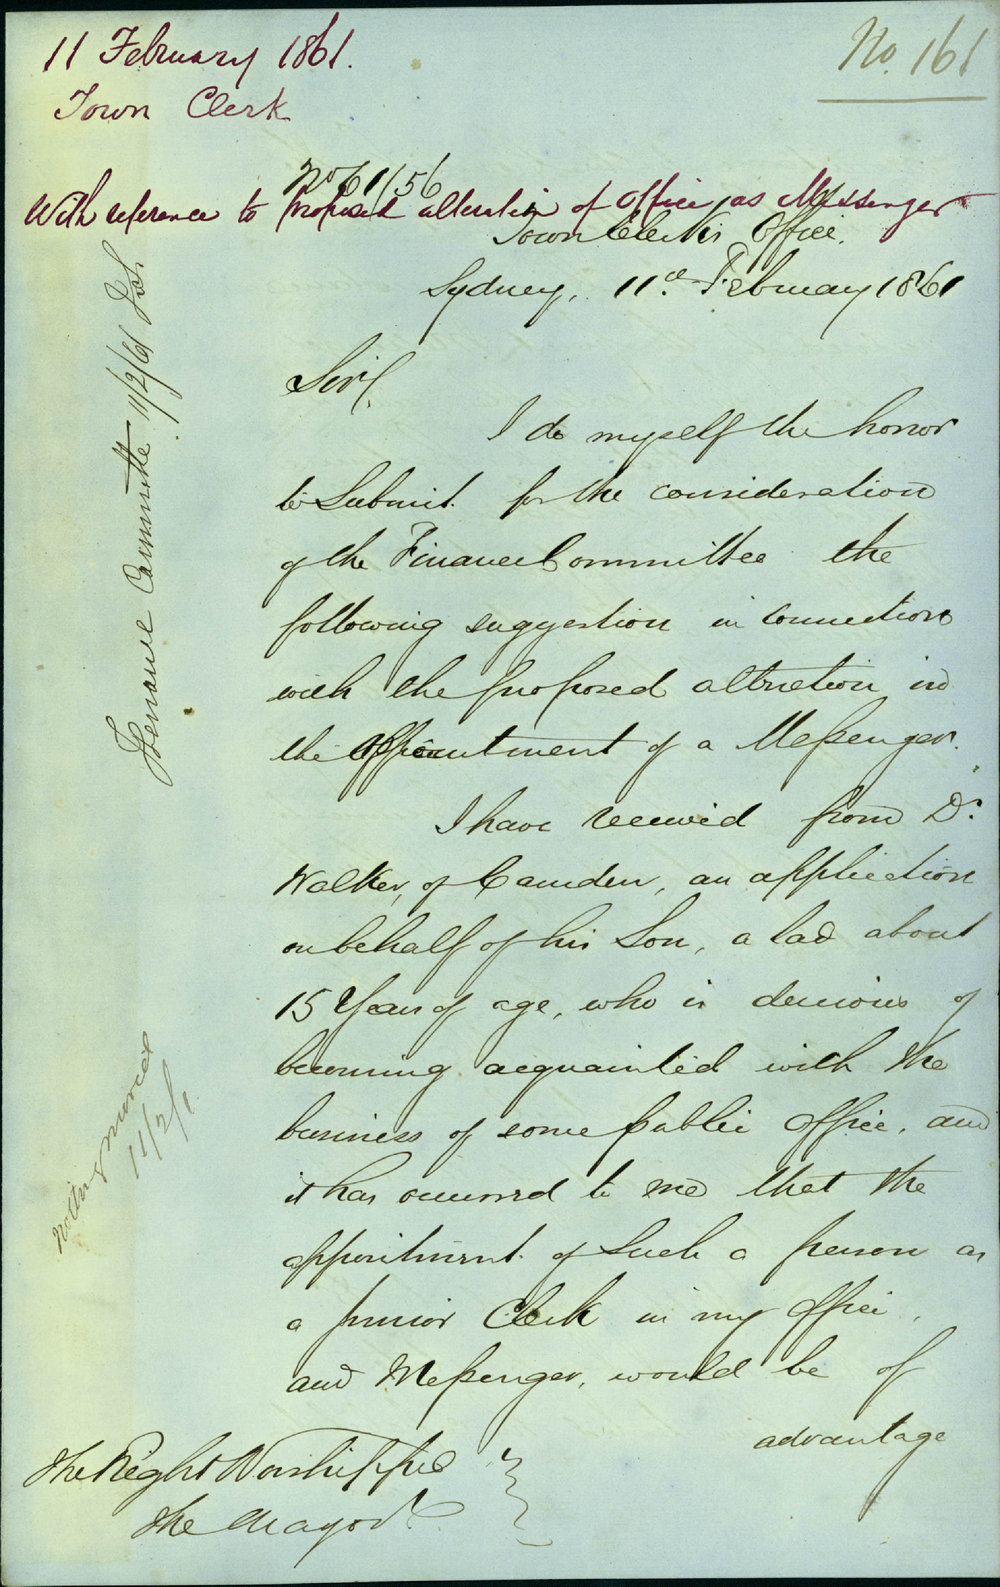 11 February 1861.
No. 161
Town Clerk
No 61/56
With reference to proposed alteration of Office as Messenger
Town Clerk's Office.
Sydney, 11th February 1861
Sir,
I do myself the honor
to Submit for the consideration
of the Finance Committee the
following suggestion in connection
with the proposed alteration in
the appointment of a Messenger.
I have received from Dr.
Walker, of Camden, an application
on behalf of his Son, a lad about
15 Years of age, who is desirous of
becoming acquainted with the
business of some public office, and
it has occurred to me that the
appointment of Such a person as
a junior Clerk in my office,
and Messenger, would be of
advantage
The Right Worshipful
The Mayor
Finance Committee 11/2/61
11/2/1.